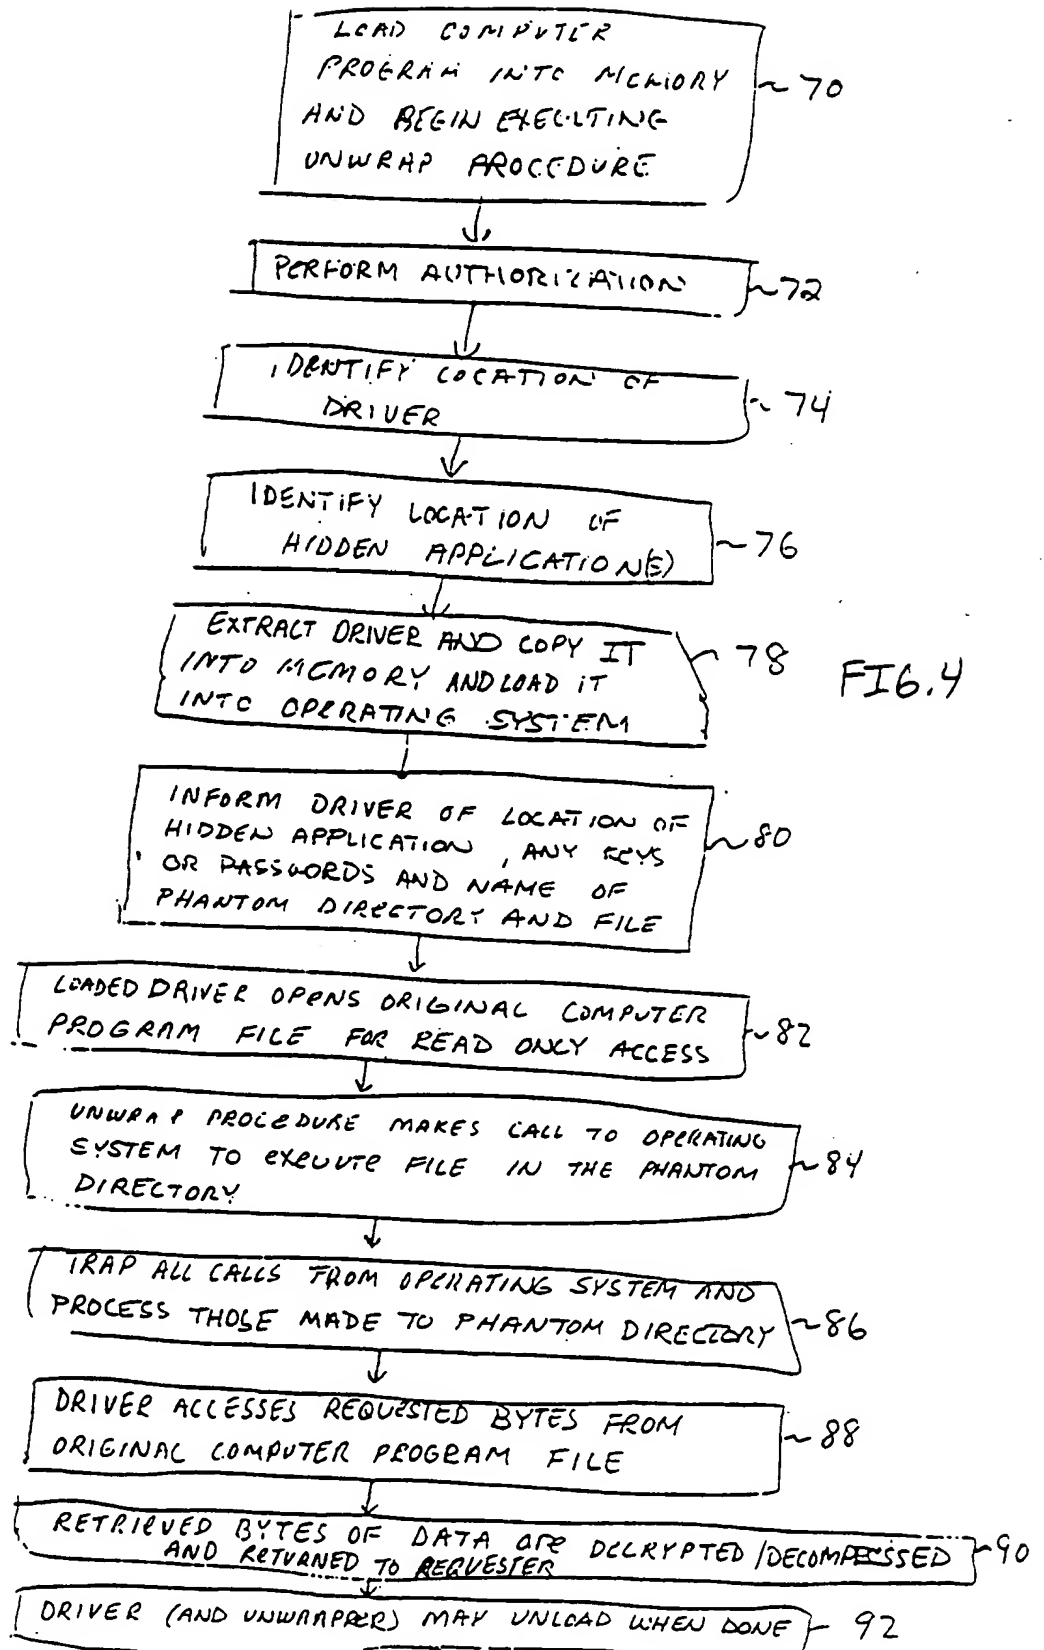 LOAD COMPUTER
PROGRAM INTO MEMORY
AND BEGIN EXECUTING
UNWRAP PROCEDURE
70
PERFORM AUTHORIZATION
72
IDENTIFY LOCATION OF
DRIVER
74
IDENTIFY LOCATION OF
HIDDEN APPLICATION(S)
76
EXTRACT DRIVER AND COPY IT
INTO MEMORY AND LOAD IT
INTO OPERATING SYSTEM
78
FIG. 4
INFORM DRIVER OF LOCATION OF
HIDDEN APPLICATION, ANY KEYS
OR PASSWORDS AND NAME OF
PHANTOM DIRECTORY AND FILE
80
LOADED DRIVER OPENS ORIGINAL COMPUTER
PROGRAM FILE FOR READ ONLY ACCESS
82
UNWRAP PROCEDURE MAKES CALL TO OPERATING
SYSTEM TO EXECUTE FILE IN THE PHANTOM
DIRECTORY
84
TRAP ALL CALLS FROM OPERATING SYSTEM AND
PROCESS THOSE MADE TO PHANTOM DIRECTORY
86
DRIVER ACCESSES REQUESTED BYTES FROM
ORIGINAL COMPUTER PROGRAM FILE
88
RETRIEVED BYTES OF DATA ARE DECRYPTED/DECOMPRESSED
AND RETURNED TO REQUESTER
90
DRIVER (AND UNWRAPPER) MAY UNLOAD WHEN DONE
92